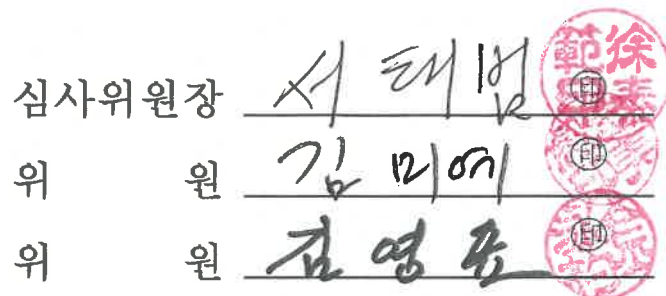 심사위원장 서태범 印
위 원 김미애 印
위 원 김영표 印